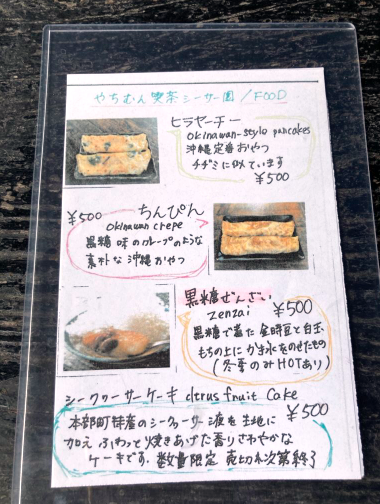 やちむん喫茶シーサー園/FOOD
ヒラヤーチー
Okinawan-style pancakes
沖縄定番おやつ
チヂミに似ています
¥500
¥500
ちんぴん
Okinawan crepe
黒糖味のクレープのような
素朴な沖縄おやつ
黒糖ぜんざい
Zenzai
¥500
黒糖で煮た金時豆と白玉
もちの上にかき氷をのせたもの
(冬季のみHOTあり)
シークヮーサーケーキ citrus fruit Cake
¥500
本部町特産のシークヮーサー液を生地に
加えふわっと焼きあげた香りさわやかな
ケーキです。数量限定 売切れ次第終了